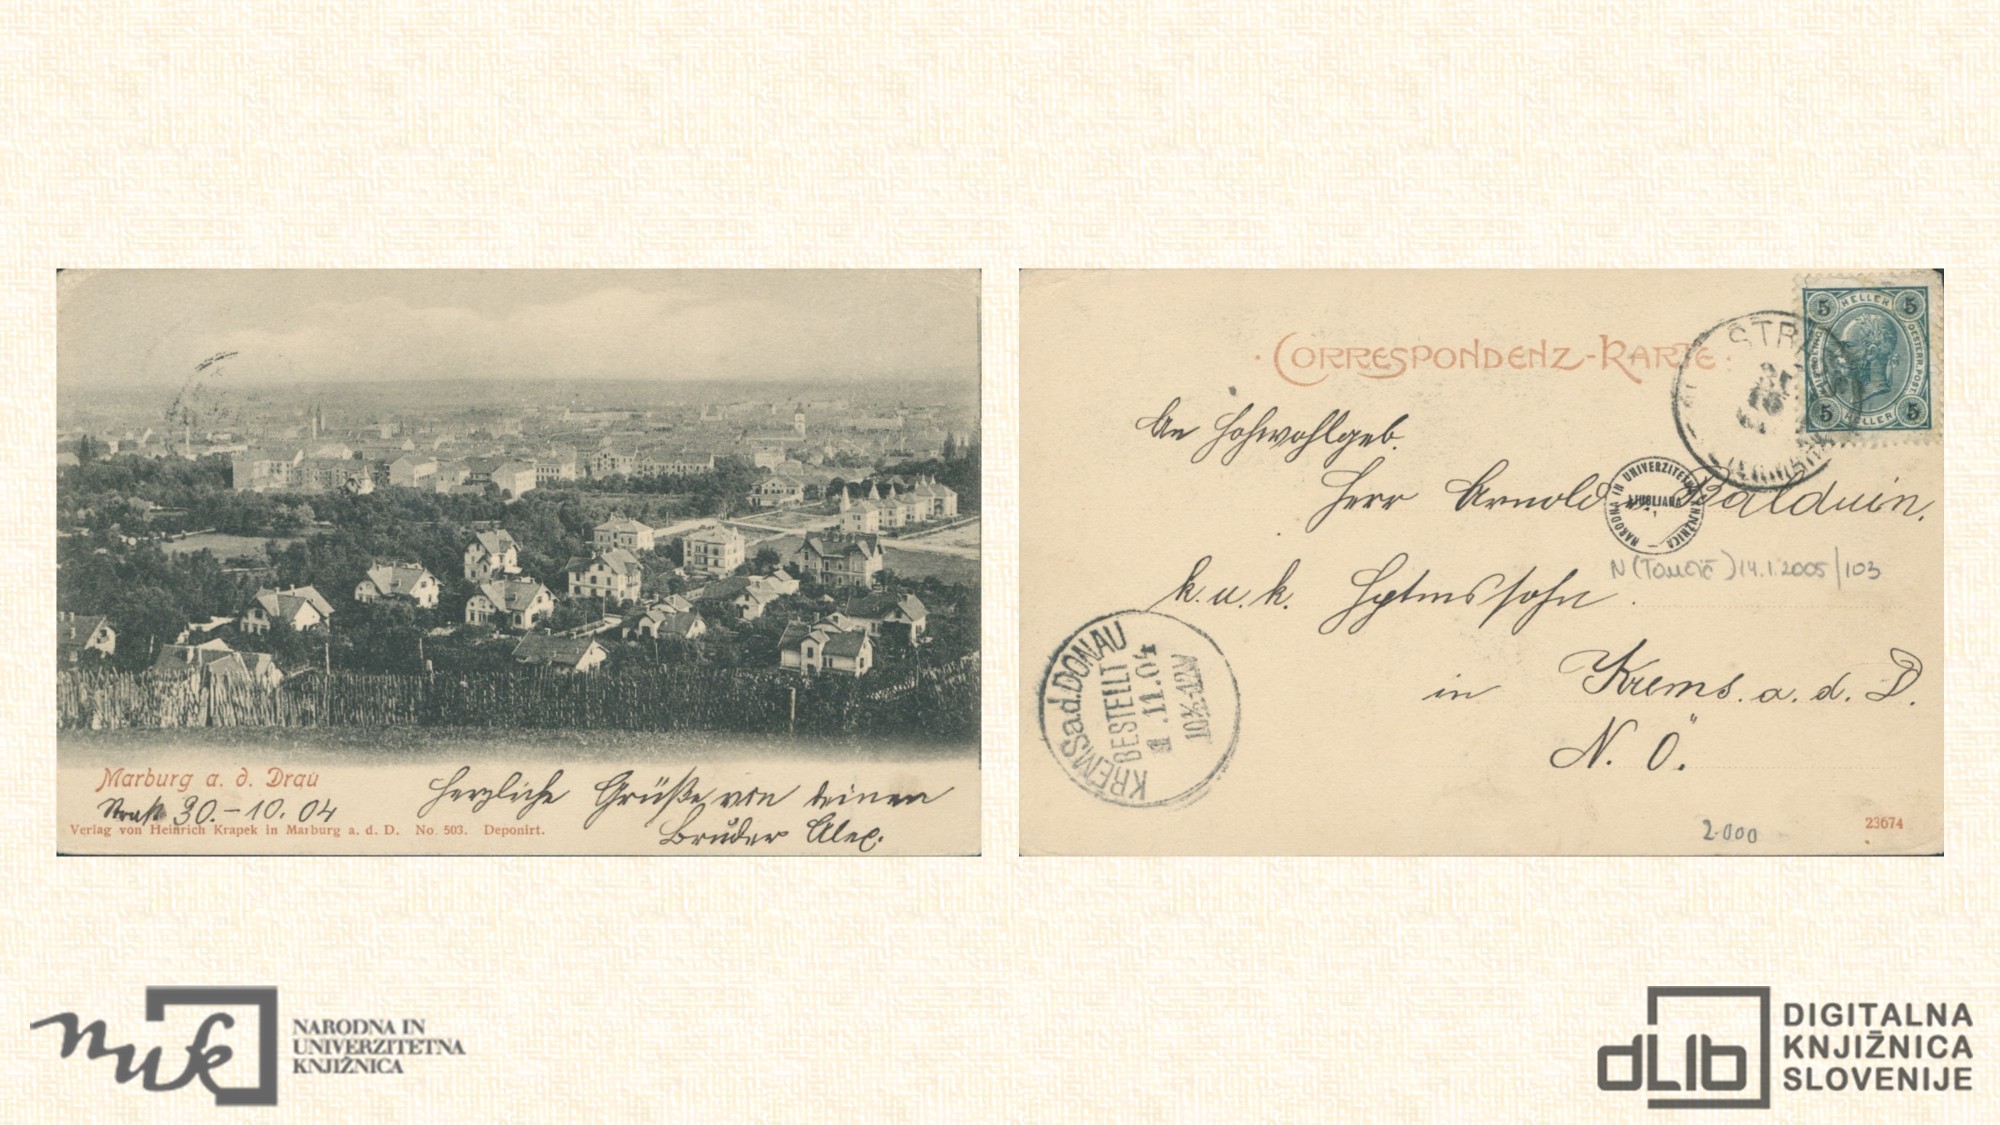 Marburg a. d. Drau
Straß 30.-10. 04
Herzliche Grüße von deinen
Bruder Alex.
Verlag von Heinrich Krapek in Marburg a. d. D. No. 503. Deponirt.
CORRESPONDENZ-KARTE
5 HELLER 5
5 HELLER 5
OESTERR. POST.
STR
An Hohwohlgeb.
Herr Arnold Balduin.
NARODNA IN UNIVERZITETNA KNJIŽNICA
LJUBLJANA
N (Tomčič) 14.1.2005/103
k. u. k. Hptmssohn.
in Krems. a. d. D.
N. Ö.
KREMS a.d. DONAU
BESTELLT
.11.04
2.000
23674
nuk
NARODNA IN
UNIVERZITETNA
KNJIŽNICA
dLib
DIGITALNA
KNJIŽNICA
SLOVENIJE